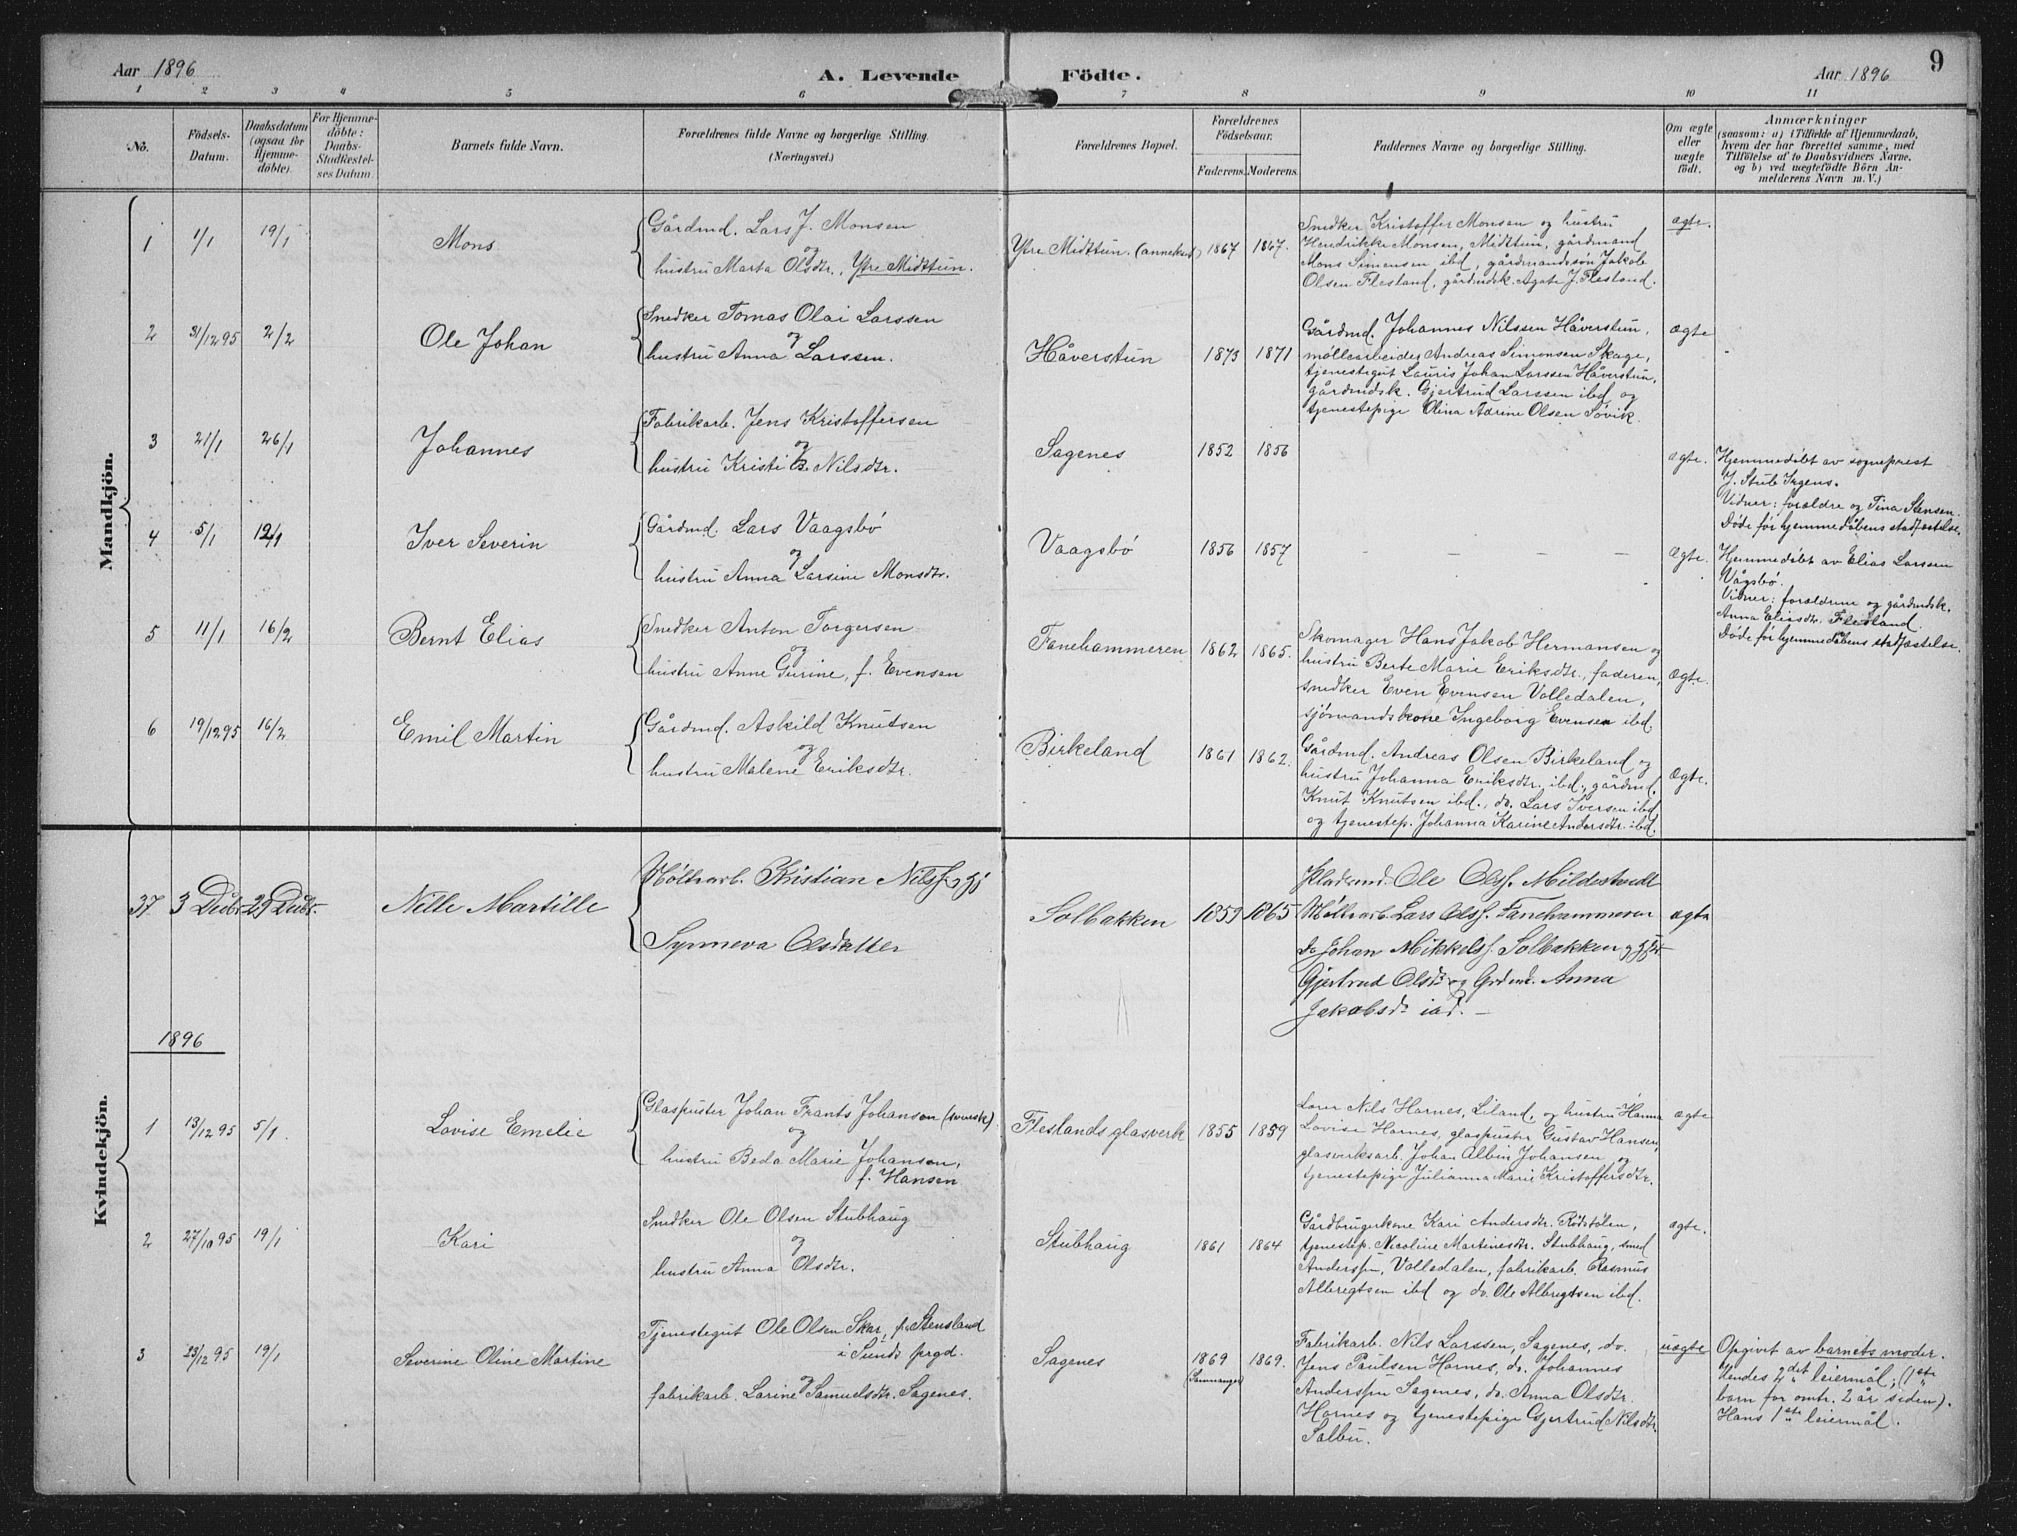 Aar 1896
A. Levende Födte.
Aar 1896
9
1 2 3 4 5 6 7 8 9 10 11
No.
Födsels-
Datum.
Daabsdatum
(ogsaa for
Hjemme-
döbte).
For Hjemme-
döbte:
Daabs-
Stadfæstel-
ses Datum.
Barnets fulde Navn.
Forældrenes fulde Navne og borgerlige Stilling.
(Næringsvei.)
Forældrenes Bopæl.
Forældrenes
Födselsaar.
Faderens. Moderens.
Faddernes Navne og borgerlige Stilling.
Om ægte
eller
uægte
födt.
Anmærkninger
(saasom: a) i Tilfælde af Hjemmedaab,
hvem der har forrettet samme, med
Tilföielse af to Daabsvidners Navne,
og b) ved uægtefödte Börn An-
melderens Navn m. V.)
Mandkjön.
1 1/1 19/1 Mons
Gårdmd. Lars J. Monsen
og
hustru Marta Olsdtr., Ytre Midttun.
Ytre Midttun. 1867 1867.
Snedker Kristoffer Monsen og hustru
Hendrikke Monsen, Midttun, gårdmand
Mons Simensen ibd, gårdmandssøn Jakob
Olsen Flesland, gårdmdsk. Agate J. Flesland.
ægte.
2 31/12 95 2/2 Ole Johan
Snedker Tomas Olai Larssen
og
hustru Anna Larssen.
Håverstun 1873 1871
Gårdmd. Johannes Nilssen Håverstun,
møllearbeider Andreas Simonsen Skage,
tjenestegut Lauris Johan Larssen Håverstun,
gårdmdsk. Gjertrud Larssen ibd og
tjenestepige Olina Adrine Olsen Søvik.
ægte
3 21/1 26/1 Johannes
Fabrikarb. Jens Kristoffersen
og
hustru Kristi B. Nilsdtr.
Sagenes 1852 1856
ægte.
Hjemmedøbt av sogneprest
J. Stub Irgens.
Vidner: forældre og Tina Stensen.
Døde før hjemmedåbens stadfæstelse.
4 5/1 12/1 Iver Severin
Gårdmd. Lars Vaagsbø
og
hustru Anna Larsine Monsdtr.
Vaagsbø 1856 1857
ægte.
Hjemmedøbt av Elias Larssen
Vågsbø.
Vidner: forældrene og gårdmdsk.
Anna Eliasdtr. Flesland.
Døde før hjemmedåbens stadfæstelse.
5 11/1 16/2 Bernt Elias
Snedker Anton Torgersen
og
hustru Anne Gurine, f. Evensen
Fanehammeren 1862 1865.
Skomager Hans Jakob Hermansen og
hustru Berte Marie Eriksdtr., faderen,
snedker Even Evensen Volledalen,
sjømandskone Ingeborg Evensen ibd.
ægte.
6 19/12 95 16/2 Emil Martin
Gårdmd. Askild Knutsen
og
hustru Malene Eriksdtr.
Birkeland 1861 1862.
Gårdmd. Andreas Olsen Birkeland og
hustru Johanna Eriksdtr. ibd., gårdmd.
Knut Knutsen ibd., do. Lars Iversen ibd
og tjenestep. Johanna Karine Andersdtr. ibd.
ægte.
37 3 Dcbr. 29 Dcbr. Nille Martille
Møllearb. Kristian Nilss.
Synneva Olsdatter
Solbakken 1859 1865
Ole Olss. Mildestvedt
Møllearb. Lars Olss. Fanehammeren
do Johan Mikkelss. Solbakken
Gjertrud Olsdr og Anna
Jakobsdr ibd. —
ægte
1896
Kvindekjön.
1 13/12 95 5/1. Lovise Emelie
Glaspuster Johan Frants Johanson (svensk).
og
hustru Beda Marie Johansen,
f. Hansen
Fleslands glasverk 1855 1859
Lærer Nils Hornes, Liland, og hustru Hanna
Lovise Hornes, glaspuster Gustav Hansen,
glasverksarb. Johan Albin Johansen og
tjenestepige Julianna Marie Kristoffersdtr.
ægte
2 27/10 95 19/1 Kari
Snedker Ole Olsen Stubhaug
og
hustru Anna Olsdtr.
Stubhaug 1861 1864
Gårdbrugerkone Kari Andersdtr. Rödstölen,
tjenestep. Nicoline Martinesdtr. Stubhaug, smed
Anderssen, Volledalen, fabrikarb. Rasmus
Albregtsen ibd og do. Ole Albregtsen ibd.
ægte.
3 23/12 95 19/1 Severine Oline Martine
Tjenestegut Ole Olsen Skar, p. Stensland
i Sunds prgd.
og
fabrikarb. Larine Samuelsdtr. Sagenes.
Sagenes 1869 1869.
(Samnanger)
Fabrikarb. Nils Larssen, Sagenes, do.
Jens Paulsen Hornes, do. Johannes
Anderssen Sagenes, do. Anna Olsdtr.
Hornes og tjenestepige Gjertrud Nilsdtr.
Salbu.
uægte
Opgivet av barnets moder.
Hendes 2det leiermål, (1ste
barn for omtr. 2 år siden).
Hans 1ste leiermål.